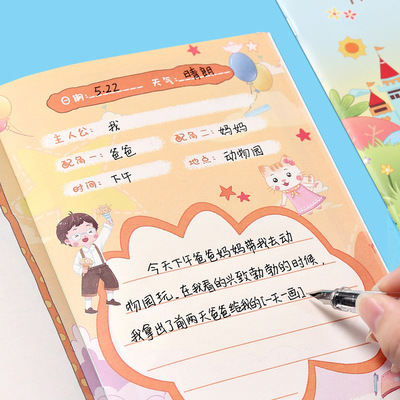 日期: 5.22 天气: 晴朗
主人公: 我
配角一: 爸爸 配角二: 妈妈
时间: 下午 地点: 动物园
今天下午爸爸妈妈带我去动
物园玩。在我看的兴致勃勃的时候，
我拿出了前两天爸爸给我的[一木一画]